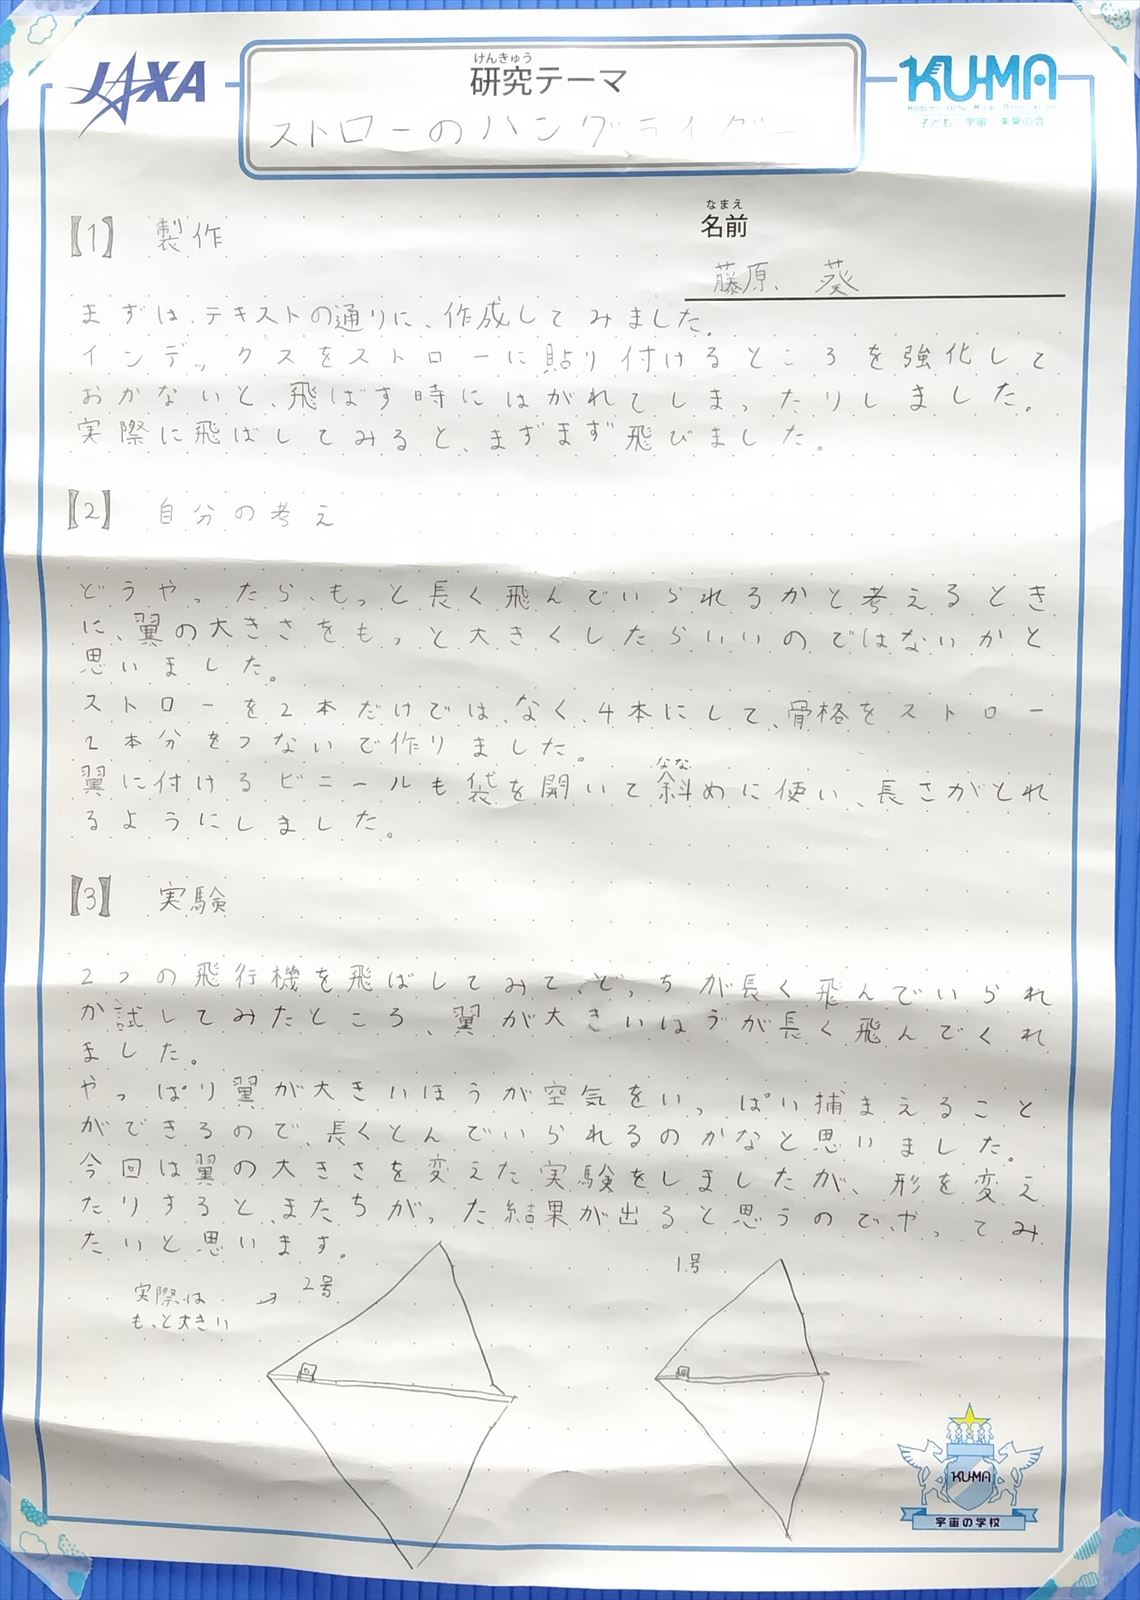 JAXA
けんきゅう
研究テーマ
ストローのハングライダー
KU-MA
子ども・宇宙・未来の会
【1】 製作
なまえ
名前
藤原 葵
まずは、テキストの通りに、作成してみました。
インデックスをストローに貼り付けるところを強化して
おかないと、飛ばす時にはがれてしまったりしました。
実際に飛ばしてみると、まずまず飛びました。
【2】 自分の考え
どうやったら、もっと長く飛んでいられるかと考えるとき
に、翼の大きさをもっと大きくしたらいいのではないかと
思いました。
ストローを2本だけではなく、4本にして、骨格をストロー
2本分をつないで作りました。
なな
翼に付けるビニールも袋を開いて斜めに使い、長さがとれ
るようにしました。
【3】 実験
2つの飛行機を飛ばしてみて、どっちが長く飛んでいられ
か試してみたところ、翼が大きいほうが長く飛んでくれ
ました。
やっぱり翼が大きいほうが空気をいっぱい捕まえること
ができるので、長くとんでいられるのかなと思いました。
今回は翼の大きさを変えた実験をしましたが、形を変え
たりすると、またちがった結果が出ると思うので、やってみ
たいと思います。
実際は
もっと大きい
→ 2号
1号
KU-MA
宇宙の学校